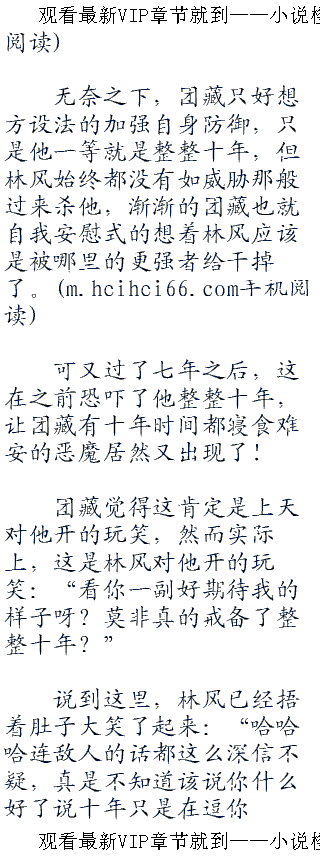 观看最新VIP章节就到——小说检
阅读)
无奈之下，团藏只好想
方设法的加强自身防御，只
是他一等就是整整十年，但
林风始终都没有如威胁那般
过来杀他，渐渐的团藏也就
自我安慰式的想着林风应该
是被哪里的更强者给干掉
了。(m.hcihci66.com手机阅
读)
可又过了七年之后，这
在之前恐吓了他整整十年，
让团藏有十年时间都寝食难
安的恶魔居然又出现了！
团藏觉得这肯定是上天
对他开的玩笑，然而实际
上，这是林风对他开的玩
笑：“看你一副好期待我的
样子呀？莫非真的戒备了整
整十年？”
说到这里，林风已经捂
着肚子大笑了起来：“哈哈
哈连敌人的话都这么深信不
疑，真是不知道该说你什么
好了说十年只是在逗你
观看最新VIP章节就到——小说检